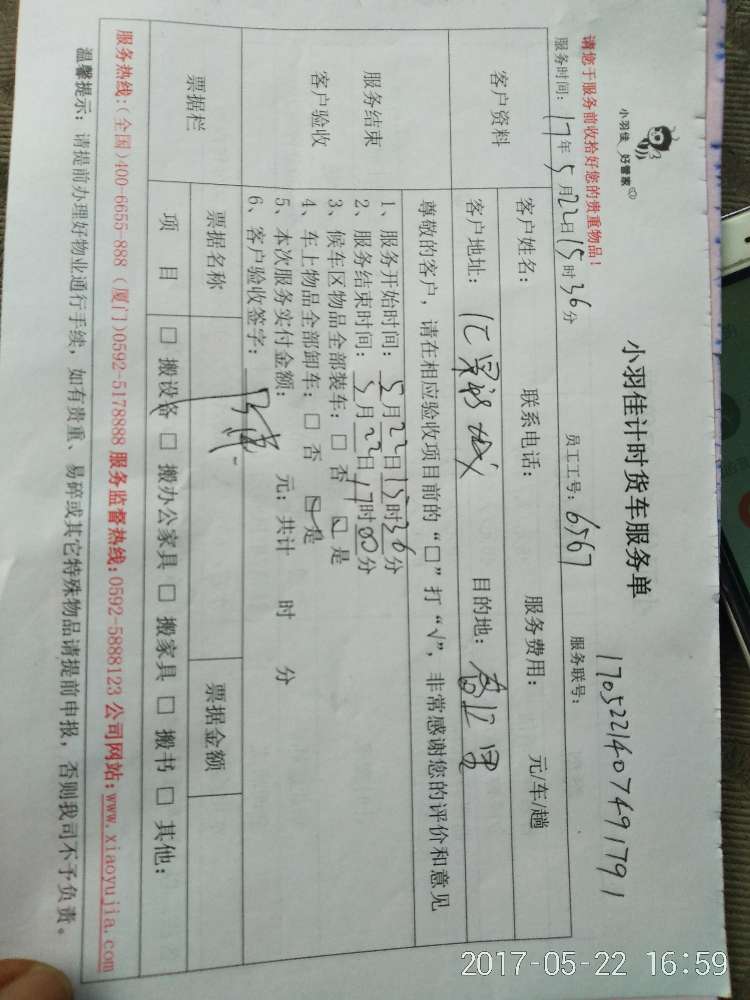 小羽佳 好管家
小羽佳计时货车服务单
1705221407491791
请您于服务前收拾好您的贵重物品！
服务时间：17年5月22日15时36分 员工工号：6567 服务联号：
客户资料
客户姓名： 联系电话： 服务费用： 元/车/趟
客户地址： 目的地：
尊敬的客户，请在相应验收项目前的“□”打“√”，非常感谢您的评价和意见
服务结束
客户验收
1、服务开始时间：5月22日15时36分
2、服务结束时间：5月22日17时00分
3、候车区物品全部装车：□ 否 ☑ 是
4、车上物品全部卸车：□ 否 ☑ 是
5、本次服务实付金额： 元；共计 时 分
6、客户验收签字：
票据栏
票据名称 票据金额
项 目 □ 搬设备 □ 搬办公家具 □ 搬家具 □ 搬书 □ 其他：
服务热线：(全国)400-6655-888 (厦门)0592-5178888 服务监督热线：0592-5888123 公司网站：www.xiaoyujia.com
温馨提示：请提前办理好物业通行手续，如有贵重、易碎或其它特殊物品请提前申报，否则我司不予负责。
2017-05-22 16:59